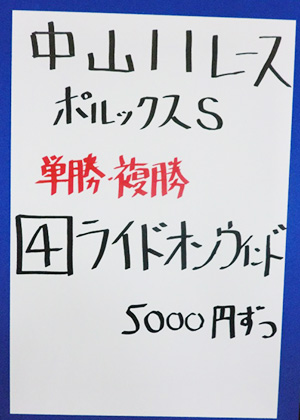 中山11レース
ポルックスS
単勝・複勝
4 ライドオンウインド
5000円ずつ